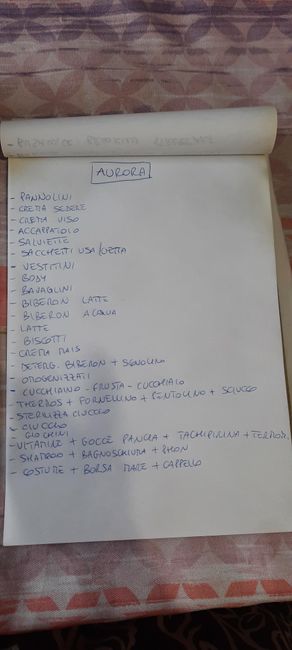 AURORA
- PANNOLINI
- CREMA SEDERE
- CREMA VISO
- ACCAPPATOIO
- SALVIETTE
- SACCHETTI USA/GETTA
- VESTITINI
- BODY
- BAVAGLINI
- BIBERON LATTE
- BIBERON ACQUA
- LATTE
- BISCOTTI
- CREMA MAIS
- DETERG. BIBERON +
- OMOGENIZZATI
- CUCCHIAINO - FRUSTA - CUCCHIAIO
- THERMOS + FORNELLINO + PENTOLINO +
- STERILIZZA CIUCCIO
- CIUCCIO
- GIOCHINI
- VITAMINE + GOCCE PANCIA + TACHIPIRINA +
- SHAMPOO + BAGNOSCHIUMA + PHON
- COSTUME + BORSA MARE + CAPPELLO